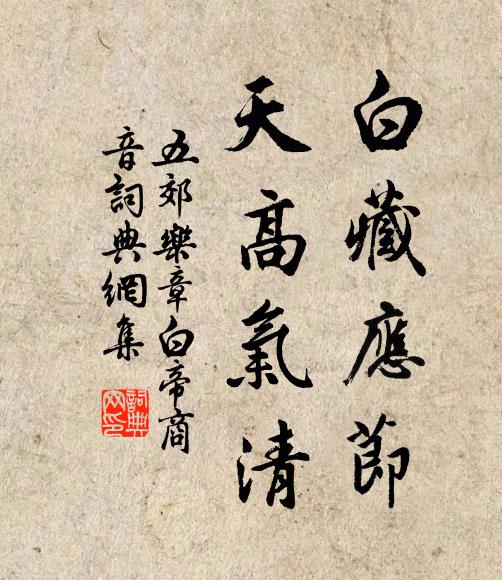 白藏應節
天高氣清
五郊樂章白帝商
音詞典網集
詞典
网印